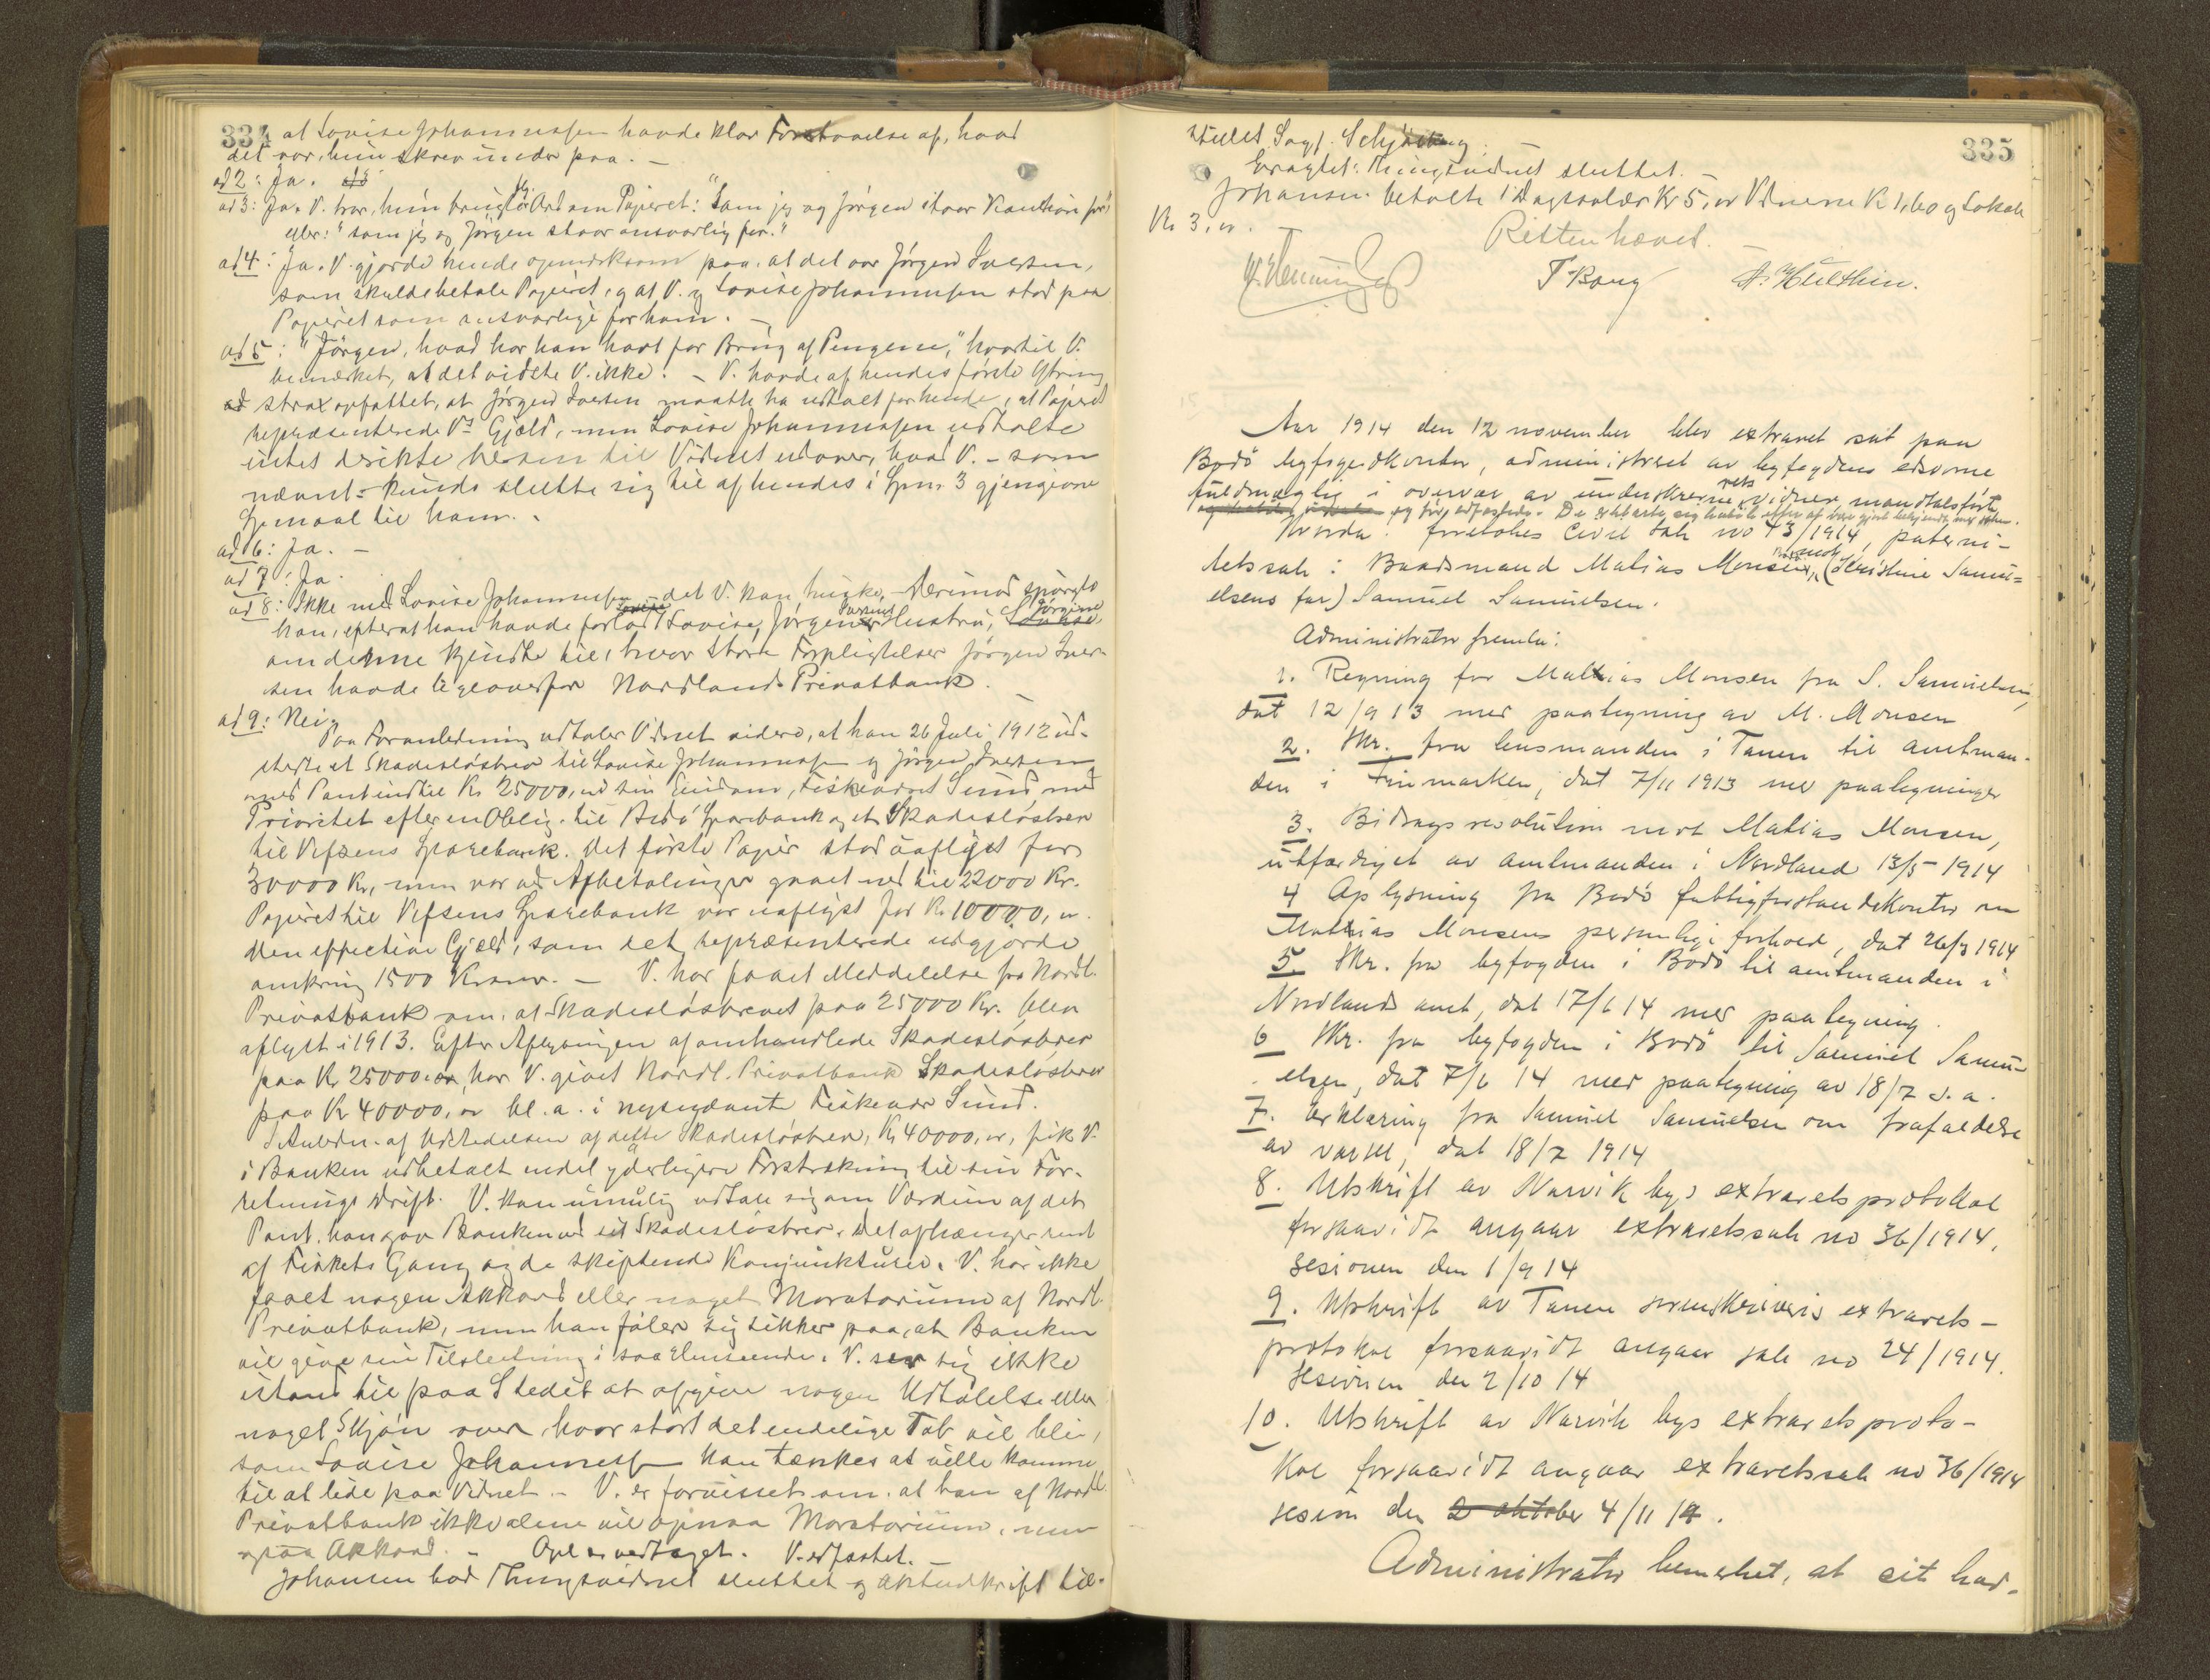 334
at Lovise Johannessen havde klar Forstaaelse af, hvad
det var, hun skrev under paa. –
ad 2: Ja.
ad 3: Ja. V. tror, hun brugte Ord om Papiret: "Som jeg og Jørgen staar Kaution for"
eller: "som jeg og Jørgen staar ansvarlig for."
ad 4: Ja. V. gjorde hende opmerksom paa, at det var Jørgen Iversen,
som skulde betale Papiret, og at V. og Lovise Johannessen stod paa
Papiret som ansvarlige for ham. –
ad 5: "Jørgen, hvad har han havt for Brug af Pengene," hvortil V.
bemerket, at det vidste V. ikke. – V. havde af hendes første Ytring
strax opfattet, at Jørgen Iversen maatte ha udtalt for hende, at Papiret
repræsenterede Vs Gjæld, men Lovise Johannessen udtalte
intet direkte herom til Vidnet udover, hvad V. – som
nævnt – kunde slutte sig til af hendes i Spm. 3 gjengivne
Spmaal til ham. –
ad 6: Ja. –
ad 7: Ja.
ad 8: Ikke med Lovise Johannessen – det V. kan huske. – Derimod spurgte
han, efterat han havde forladt Lovise, Jørgen Iversens Hustru, Jørgine
om denne kjendte til, hvor store Forpligtelser Jørgen Iver-
sen havde ligeoverfor Nordlands Privatbank. –
ad 9: Nei.
Paa Foranledning udtaler Vidnet videre, at han 26 Juli 1912 ud-
stedte et Skadesløsbrev til Lovise Johannessen og Jørgen Iversen
med Pant indtil Kr 25000, i sin Eiendom, Fiskeværet Sund med
Prioritet efter en Oblig. til Bodø Sparebank og et Skadesløsbrev
til Vefsens Sparebank. Det første Papir stod uaflyst for
30000 Kr, men var ved Afbetalinger gaaet ned til 22000 Kr.
Papiret til Vefsens Sparebank var uaflyst for Kr 10000,
Den effective Gjæld, som det repræsenterede udgjorde
omkring 1500 Kroner. – V. har faaet Meddelelse fra Nordl.
Privatbank om, at Skadesløsbrevet paa 25000 Kr. blev
aflyst i 1913. Efter Aflysningen af omhandlede Skadesløsbrev
paa Kr 25000, har V. givet Nordl. Privatbank Skadesløsbrev
paa Kr 40000, bl. a. i nysnævnte Fiskevær Sund.
I Anledn. af Udstedelsen af dette Skadesløsbrev, Kr 40000, fik V.
i Banken udbetalt endel yderligere Forstrækning til sin For-
retnings Drift. V. kan umulig udtale sig om Værdien af det
Pant, han gav Banken ved sit Skadesløsbrev, det afhænger rent
af Fiskets Gang og de skiftende Konjunkturer. V. har ikke
faaet nogen Akkord eller noget Moratorium af Nordl.
Privatbank, men han føler sig sikker paa, at Banken
vil give sin Tilslutning i saa Henseende. V. ser sig ikke
istand til paa Stedet at afgive nogen Udtalelse eller
noget Skjøn over, hvor stort det endelige Tab vil bli,
som Lovise Johannessen kan tænkes at ville komme
til at lide paa Vidnet. – V. er forvisset om, at han af Nordl.
Privatbank ikke alene vil opnaa Moratorium, men
ogsaa Akkord. – Opl. vedtaget. V. edfæstet. –
Johansen bad Thingsvidnet sluttet og Aktudskrift til-
335
stillet Sagf. Schjöning.
Eragtet: Thingsvidnet sluttet. –
Johansen betalte 1 Dagssalær Kr 5, Vidnerne Kr 1,60 og Lokale
Kr 3,
Retten hævet.
T Bang A. Hulthin.
Aar 1914 den 12 november blev extraret sat paa
Bodø byfogedkontor, administreret av byfogdens edsvorne
fuldmægtig i overvær av underskrevne retsvidner
Hvorda: foretokes Civil sak no 43/1914, paterni-
tetssak: Baadsmand Matias Monsen mot (Kristine Samu-
elsens far) Samuel Samuelsen.
Administrator fremla:
1. Regning for Mathias Monsen fra S. Samuelsen,
dat 12/9 13 med paategning av M. Monsen
2. Skr. fra lensmanden i Tanen til amtman-
den i Finmarken, dat 7/11 1913 med paategninger
3. Bidragsresolution mot Matias Monsen,
utfærdiget av amtmanden i Nordland 13/5 1914
4 Oplysning fra Bodø fattigforstanderkontor om
Mathias Monsens personlige forhold, dat 26/3 1914
5. Skr. fra byfogden i Bodø til amtmanden i
Nordlands amt, dat 17/6 14 med paategning.
6 Skr. fra byfogden i Bodø til Samuel Samu-
elsen, dat 7/6 14 med paategning av 18/7 s. a.
7. Erklæring fra Samuel Samuelsen om frafaldelse
av varsel, dat 18/7 1914
8. Utskrift av Narvik bys extraretsprotokol
forsaavidt angaar extraretssak no 36/1914,
sesionen den 1/9 14
9. Utskrift av Tanen sorenskriveris extrarets-
protokol forsaavidt angaar sak no 24/1914.
sesionen den 2/10 14
10. Utskrift av Narvik bys extraretsproto-
kol forsaavidt angaar extraretssak no 36/1914
sesion den 2 oktober 4/11 14.
Administrator bemerket, at sit had-